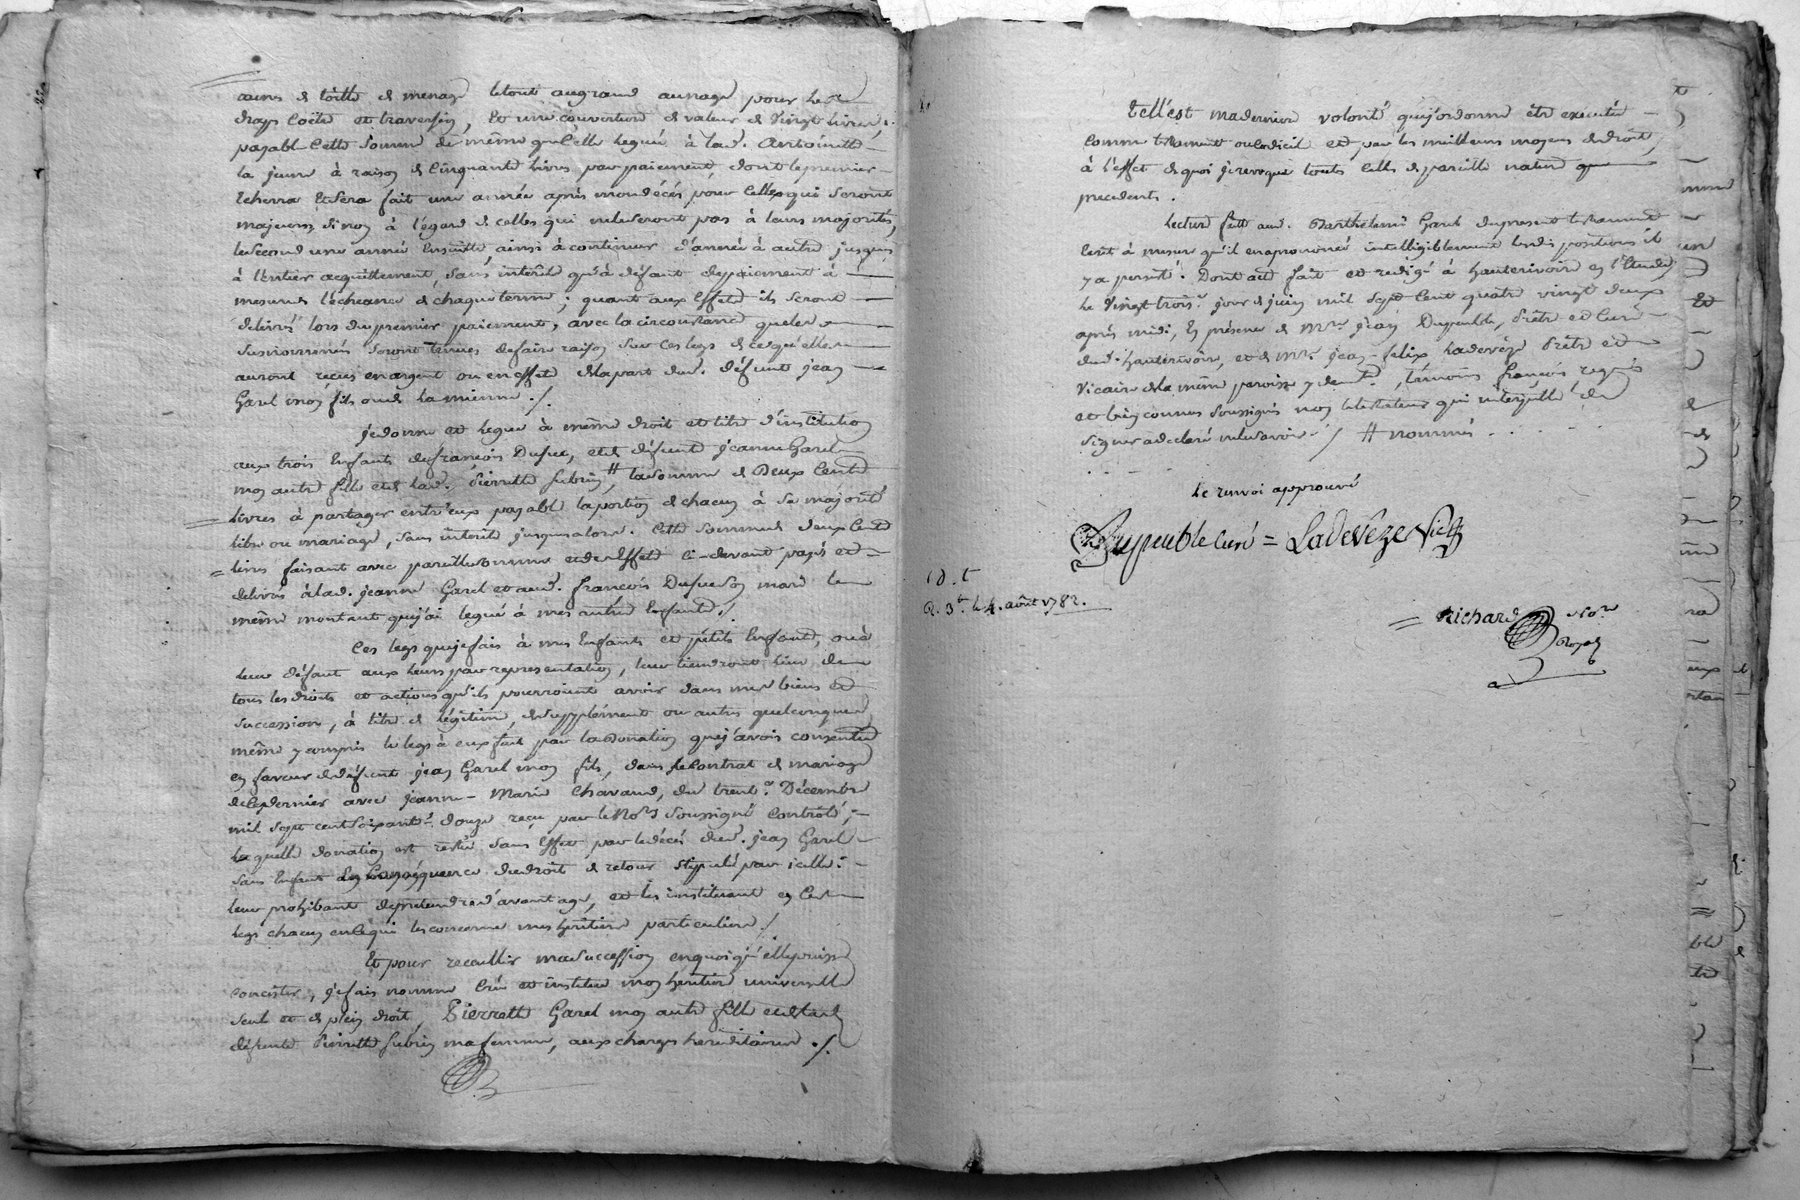 aunes de toille de menage le tout au grand aunage pour les
draps Coëte et traversin, Et une couverture de valeur de Vingt livres,
payable Cette Somme de même que Celle leguée à lad. Antoinette
la jeune à raison de Cinquante livres par paiement, dont le premier
echerra Et Sera fait une année après mon décès pour Celles qui Seront
majeures, Sinon à l'égard de celles qui ne le Seront pas à leurs majorités,
le Second une année Ensuitte, ainsi à continuer d'année à autre jusques
à l'Entier acquittement, Sans interêts qu'à défaut de paiement à
mesure de l'écheance de chaque terme ; quant aux Effets ils Seront
delivrés lors du premier paiement, avec la circonstance que les
Susnommées Seront tenues de faire raison Sur Ces legs de ce qu'elles
auront reçus en argent ou en effets de la part dud. défunt jean
Garel mon fils ou de la mienne ./.
je donne et legue à même droit et titre d'institution
aux trois Enfants de françois Dufuel, et de défunte jeanne Garel
mon autre fille et de lad. Pierrette Subrin, # la Somme de Deux Cents
livres à partager entr'eux payable la portion de chacun à Sa majorité
libre ou mariage, Sans interêts jusques alors. Cette Somme de deux Cents
livres faisant avec pareille Somme et des Effets Ci-devant payés et
delivrés à lad. jeanne Garel et aud. françois Dufuel Son mari le
même montant que j'ai legué à mes autres Enfants ./.
Ces legs que je fais à mes Enfants et petits Enfants, ou à
leur défaut aux leurs par representation, leur tiendront lieu de
tous les droits et actions qu'ils pourroient avoir dans mes biens et
Succession, à titre de légitime, de Supplément ou autres quelconques,
même y compris le legs à eux fait par la Donation que j'avois consentie
en faveur de défunt jean Garel mon fils, dans Le Contrat de mariage
de Ce dernier avec jeanne-Marie Chavand, du trente Décembre
mil Sept cent Soixante douze reçu par le No.re Soussigné Controlé ;
laquelle donation est restée Sans Effet par le décès dud. jean Garel
Sans Enfants En Conséquence du droit de retour Stipulé par icelle :
leur prohibant de prendre d'avantage, et les instituant en Ces
legs chacun en Ce qui les concerne mes héritiers particuliers ./.
Et pour recueillir ma Succession en quoi qu'elle puisse
Concister, je fais nomme Crée et institue mon héritiere universelle
Seule et de plein droit, Pierrette Garel mon autre fille et de lad.
défunte Pierrette Subrin ma femme, aux charges hereditaires ./.
tell'est ma derniere volonté que j'ordonne être exécutée
Comme testament ou Codicil et par les meilleurs moyens de droit,
à l'effet de quoi je revoque touts Ceux de pareille nature que
precedents.
Lecture faite aud. Barthelemi Garel du present testament
Ecrit à mesure qu'il en a prononcé intelligiblement les dispositions il
y a persisté. Dont acte fait et redigé à hauterivoire en l'Etude
Le Vingt trois.e jour de juin mil Sept Cent quatre vingt deux
après midi, En présence de M.re jean Dupeuble, Prêtre et Curé
dud. hauterivoire, et de M.re jean-felix Ladevèze Prêtre et
Vicaire de la même paroisse y demt. témoins français requis
et bien connus Soussignés non le testateur qui interpellé de
Signer a declaré ne le Savoir ./ # nommés
Le renvoi approuvé
Dupeuble Curé = Ladevèze Vic.
R. 3.t le 4. août 1782.
Richard No.re
Royal